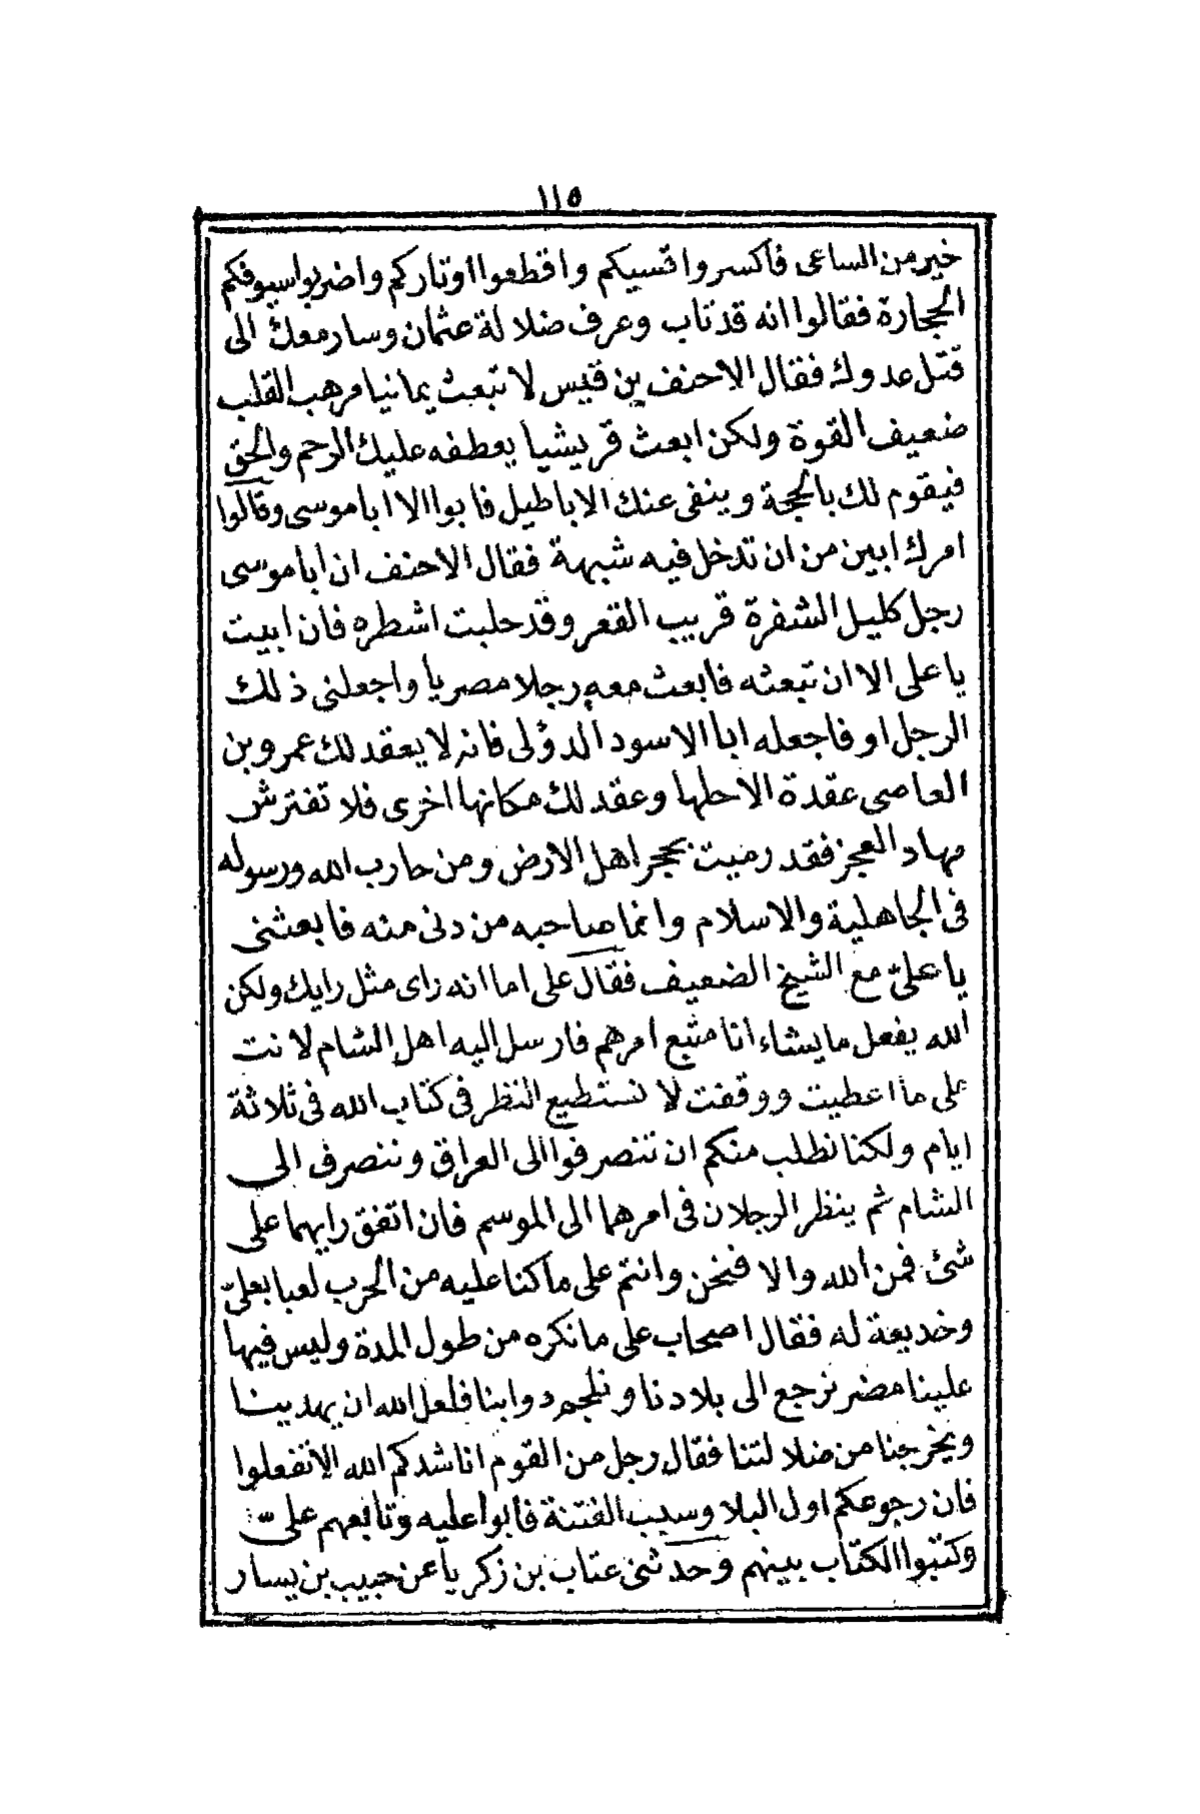 ١١٥
خير من الساعى فأكسروا قسيكم واقطعوا اوتاركم واضربوا سيوفكم
الحجارة فقالوا انه قد تاب وعرف ضلالة عثمان وسار معك الى
قتل عدوك فقال الاحنف بن قيس لا تبعث يمانيا مرهب القلب
ضعيف القوة ولكن ابعث قريشيا يعطفه عليك الرحم والحق
فيقوم لك بالحجة وينفى عنك الاباطيل فابوا الا ابا موسى وقالوا
امرك ابين من ان تدخل فيه شبهة فقال الاحنف ان ابا موسى
رجل كليل الشفرة قريب القعر وقد حلبت اشطره فان ابيت
يا على الا ان تبعثه فابعث معه رجلا مصريا واجعلنى ذلك
الرجل او فاجعله ابا الاسود الدؤلى فانه لا يعقد لك عمرو بن
العاصى عقدة الا حلها وعقد لك مكانها اخرى فلا تفترش
مهاد العجز فقد رميت بحجر اهل الارض ومن حارب الله ورسوله
فى الجاهلية والاسلام وانما صاحبه من دنى منه فابعثنى
يا علىّ مع الشيخ الضعيف فقال على اما انه راى مثل رايك ولكن
الله يفعل ما يشاء انا متبع امرهم فارسل اليه اهل الشام لانت
على ما اعطيت ووقفت لا نستطيع النظر فى كتاب الله فى ثلاثة
ايام ولكنا نطلب منكم ان تنصرفوا الى العراق وننصرف الى
الشام ثم ينظر الرجلان فى امرهما الى الموسم فان اتفق رايهما على
شئ فمن الله والا فنحن وانتم على ما كنا عليه من الحرب لعبا بعلىّ
وخديعة له فقال اصحاب على ما نكره من طول المدة وليس فيها
علينا مضر نرجع الى بلادنا ونلجم دوابنا فلعل الله ان يهدينا
ويخرجنا من ضلالتنا فقال رجل من القوم اناشدكم الله الا تفعلوا
فان رجوعكم اول البلا وسبب الفتنة فابوا عليه وتابعهم علىّ
وكتبوا الكتاب بينهم وحدثنى عتاب بن زكريا عن حبيب بن يسار